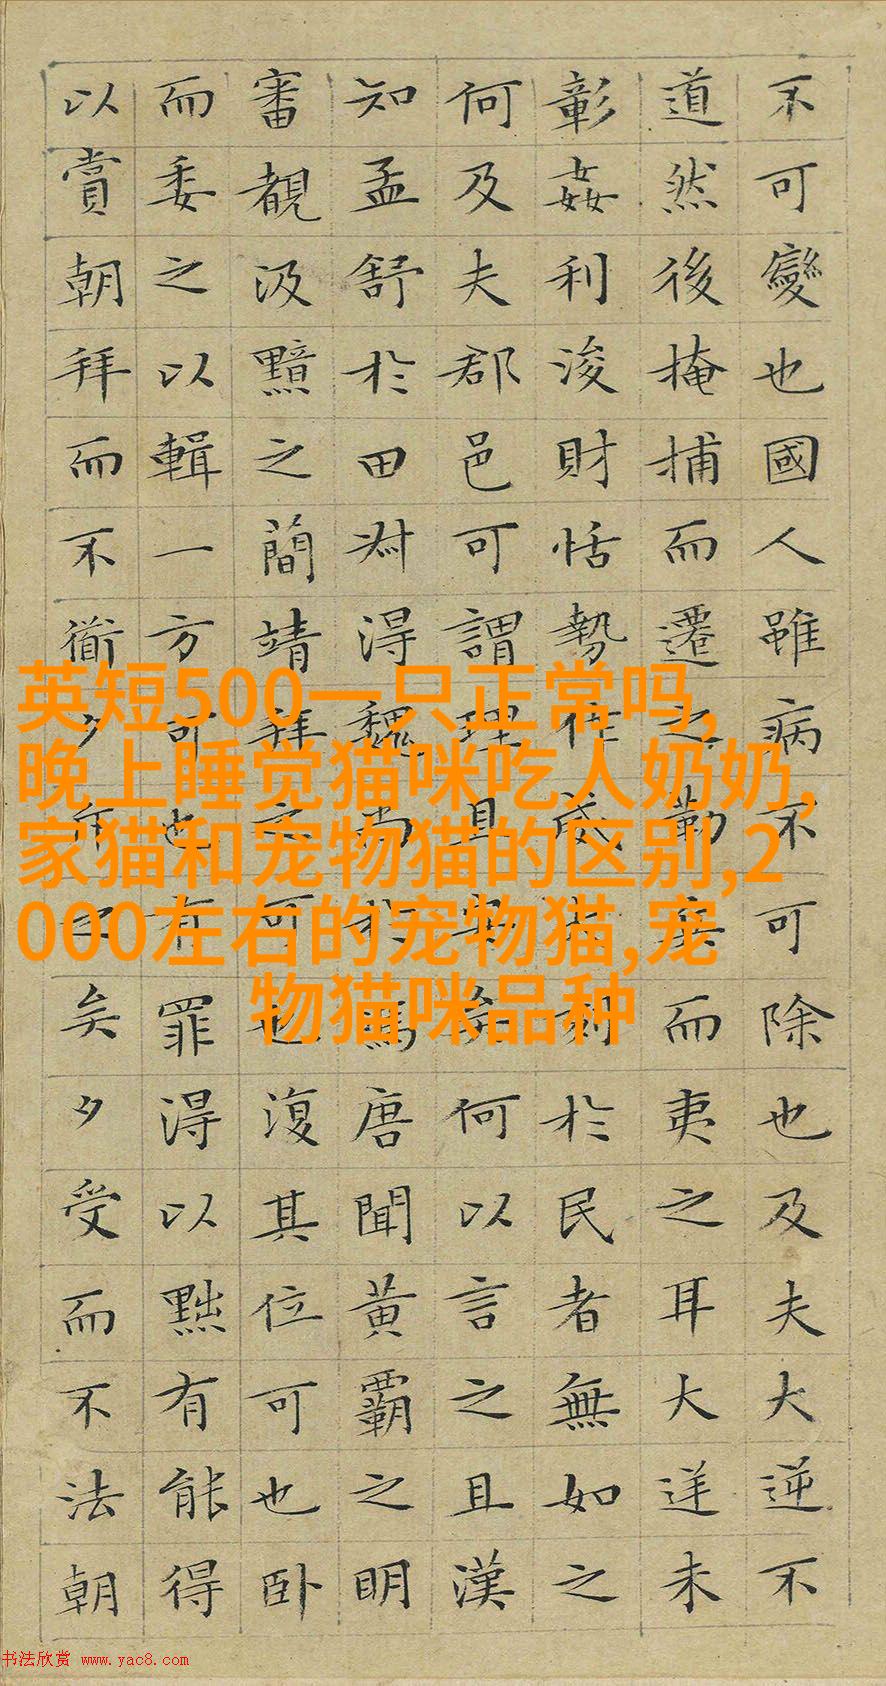 不可變也國人雖病不可除也及夫大逆不
道然後掩捕而遷之勒兵而夷之耳大逆未
彰姦利浚財怙勢作威大刻於民者無如之
何及夫郡邑可謂理且安矣何以言之且漢
知孟舒於田叔得魏尚於馮唐聞黃霸之明
審覩汲黯之簡靖拜之可也復其位可也臥
而委之以輯一方可也有罪得以黜有能得
以賞朝拜而不衜夕斥之矣夕受而不法朝
英短500一只正常吗,
晚上睡觉猫咪吃人奶奶,
家猫和宠物猫的区别,2
000左右的宠物猫,宠
物猫咪品种
书法欣赏 www.yac8.com